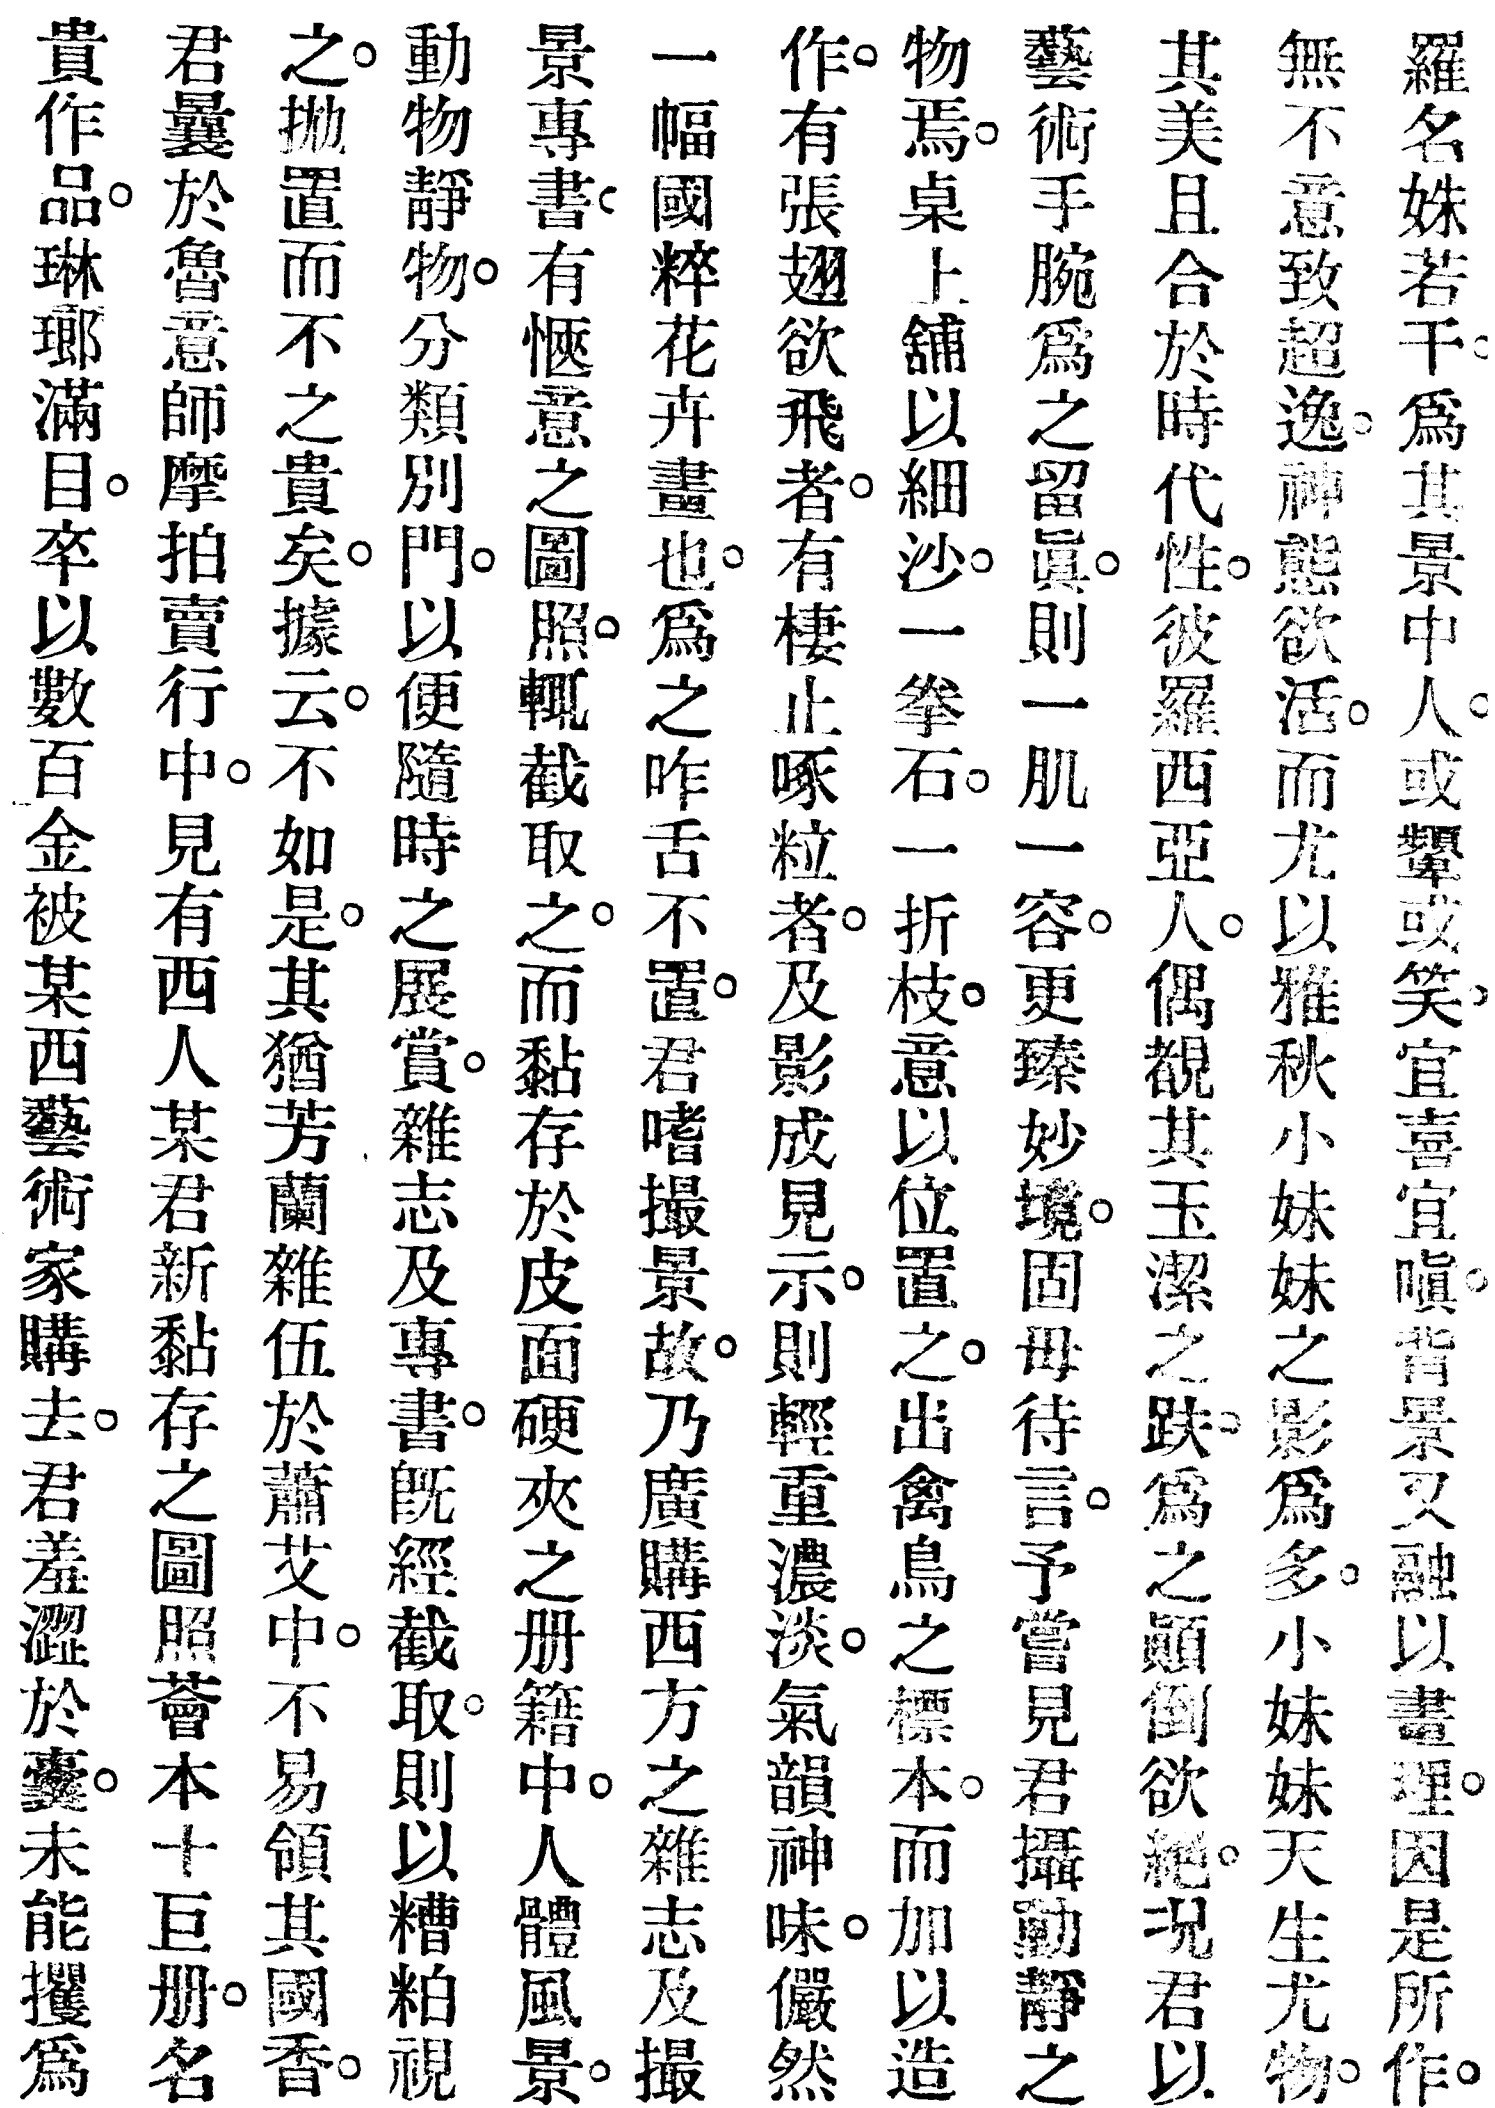 羅名姝若干。爲其景中人。或顰或笑。宜喜宜嗔。背景又融以畫理。因是所作。
無不意致超逸。神態欲活。而尤以雅秋小妹妹之影爲多。小妹妹天生尤物。
其美且合於時代性。彼羅西亞人。偶覩其玉潔之趺。爲之顚倒欲絕。况君以
藝術手腕爲之留眞。則一肌一容。更臻妙境。固毋待言。予嘗見君攝動靜之
物焉。桌上舖以細沙。一拳石。一折枝。意以位置之。出禽鳥之標本。而加以造
作。有張翅欲飛者。有棲止啄粒者。及影成見示。則輕重濃淡。氣韻神味。儼然
一幅國粹花卉畫也。爲之咋舌不置。君嗜撮景故。乃廣購西方之雜志及撮
景專書。有愜意之圖照。輒截取之。而黏存於皮面硬夾之册籍中。人體風景。
動物靜物。分類別門。以便隨時之展賞。雜志及專書。旣經截取。則以糟粕視
之。拋置而不之貴矣。據云。不如是。其猶芳蘭雜伍於蕭艾中。不易領其國香。
君曩於魯意師摩拍賣行中。見有西人某君新黏存之圖照薈本十巨册。名
貴作品。琳瑯滿目。卒以數百金被某西藝術家購去。君羞澀於囊。未能攫爲